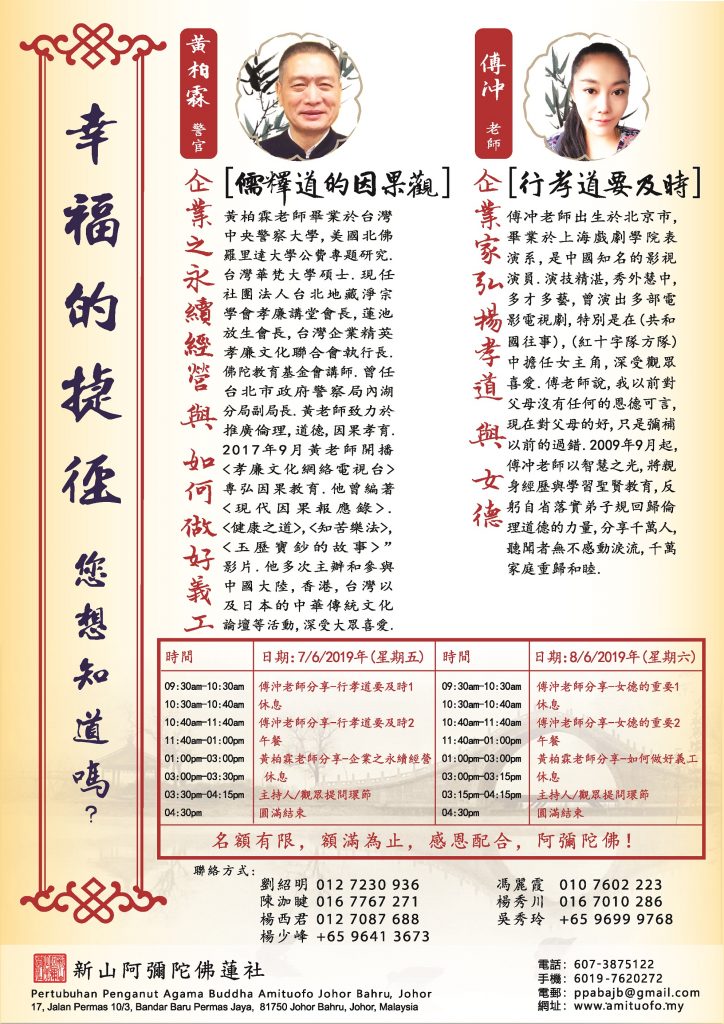 幸福的捷徑 您想知道嗎？
黃柏霖 警官
企業之永續經營與如何做好義工
[儒釋道的因果觀]
黃柏霖老師畢業於台灣
中央警察大學，美國北佛
羅里達大學公費專題研究.
台灣華梵大學碩士. 現任
社團法人台北地藏淨宗
學會孝廉講堂會長，蓮池
放生會長，台灣企業精英
孝廉文化聯合會執行長.
佛陀教育基金會講師. 曾任
台北市政府警察局內湖
分局副局長. 黃老師致力於
推廣倫理，道德，因果孝育.
2017年9月黃老師開播
<孝廉文化網絡電視台>
專弘因果教育. 他曾編著
<現代因果報應錄>.
<健康之道>,<知苦樂法>,
<玉歷寶鈔的故事>”
影片. 他多次主辦和參與
中國大陸，香港，台灣以
及日本的中華傳統文化
論壇等活動，深受大眾喜愛.
傅沖 老師
企業家弘揚孝道與女德
[行孝道要及時]
傅冲老師出生於北京市，
畢業於上海戲劇學院表
演系，是中國知名的影視
演員. 演技精湛，秀外慧中，
多才多藝，曾演出多部電
影電視劇，特別是在(共和
國往事)，(紅十字隊方隊)
中擔任女主角，深受觀眾
喜愛. 傅老師說，我以前對
父母沒有任何的恩德可言，
現在對父母的好，只是彌補
以前的過錯. 2009年9月起，
傅冲老師以智慧之光，將親
身經歷與學習聖賢教育，反
躬自省落實弟子規回歸倫
理道德的力量，分享千萬人，
聽聞者無不感動淚流，千萬
家庭重歸和睦.
時間 日期：7/6/2019年(星期五)
09:30am-10:30am 傅沖老師分享-行孝道要及時1
10:30am-10:40am 休息
10:40am-11:40am 傅沖老師分享-行孝道要及時2
11:40am-01:00pm 午餐
01:00pm-03:00pm 黃柏霖老師分享-企業之永續經營
03:00pm-03:30pm 休息
03:30pm-04:15pm 主持人/觀眾提問環節
04:30pm 圓滿結束
時間 日期：8/6/2019年(星期六)
09:30am-10:30am 傅沖老師分享-女德的重要1
10:30am-10:40am 休息
10:40am-11:40am 傅沖老師分享-女德的重要2
11:40am-01:00pm 午餐
01:00pm-03:00pm 黃柏霖老師分享-如何做好義工
03:00pm-03:15pm 休息
03:15pm-04:15pm 主持人/觀眾提問環節
04:30pm 圓滿結束
名額有限，額滿為止，感恩配合，阿彌陀佛！
聯絡方式：
劉紹明 012 7230 936
陳泇睷 016 7767 271
楊西君 012 7087 688
楊少峰 +65 9641 3673
馮麗霞 010 7602 223
楊秀川 016 7010 286
吳秀玲 +65 9699 9768
新山阿彌陀佛蓮社
Pertubuhan Penganut Agama Buddha Amituofo Johor Bahru, Johor
17, Jalan Permas 10/3, Bandar Baru Permas Jaya, 81750 Johor Bahru, Johor, Malaysia
電話：607-3875122
手機：6019-7620272
電郵：ppabajb@gmail.com
網址：www.amituofo.my